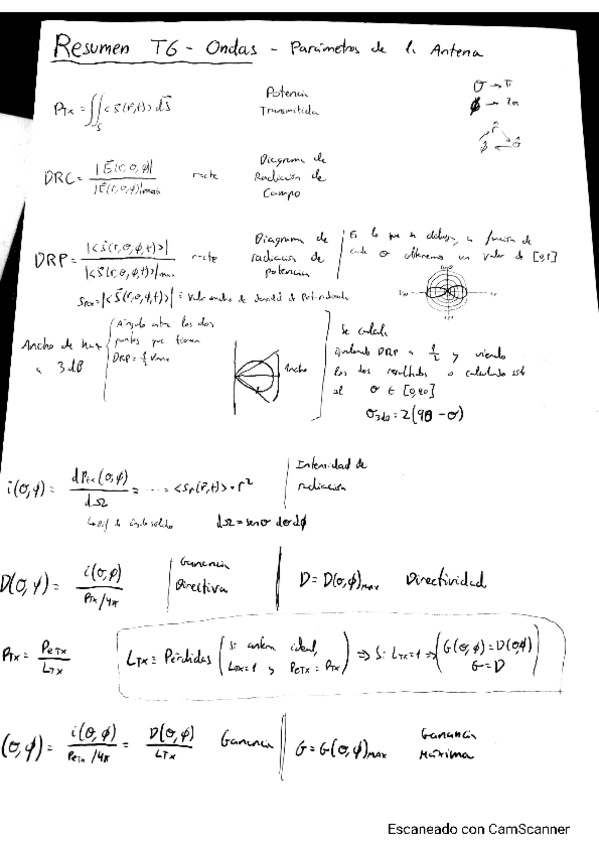 Resumen T6 - Ondas - Parámetros de la Antena
P_Tx = ∬_S <S(r,t)> dS Potencia Transmitida
θ → π
φ → 2π
r̂
φ̂ θ̂
DRC = |E(r,θ,φ)| / |E(r,θ,φ)|max r=cte Diagrama de Radiación de Campo
DRP = |<S(r,θ,φ,t)>| / |<S(r,θ,φ,t)>|max r=cte Diagrama de radiación de potencia
Es lo que se dibuja, en función de
cada θ obtenemos un valor de [0,1]
Ancho de haz a 3dB
Ángulo entre los dos
puntos que tienen
DRP = 1/2 Vmax
Ancho
Se calcula
igualando DRP a 1/2 y viendo
los dos resultados o calculando sólo
al θ ∈ [0,90]
θ3dB = 2(90 - θ)
i(θ,φ) = dP_Tx(θ,φ) / dΩ = .... = <S_r(r,t)> · r² Intensidad de radiación
dΩ = senθ dθ dφ
D(θ,φ) = i(θ,φ) / (P_Tx/4π) Ganancia Directiva D = D(θ,φ)MAX Directividad
P_Tx = P_eTx / L_Tx
L_Tx ≡ Pérdidas (Si antena ideal, L_Tx=1 y P_eTx = P_Tx) ⇒ Si L_Tx=1 ⇒ (G(θ,φ) = D(θ,φ) G=D)
(θ,φ) = i(θ,φ) / (P_eTx/4π) = D(θ,φ) / L_Tx Ganancia G = G(θ,φ)MAX Ganancia Máxima
Escaneado con CamScanner